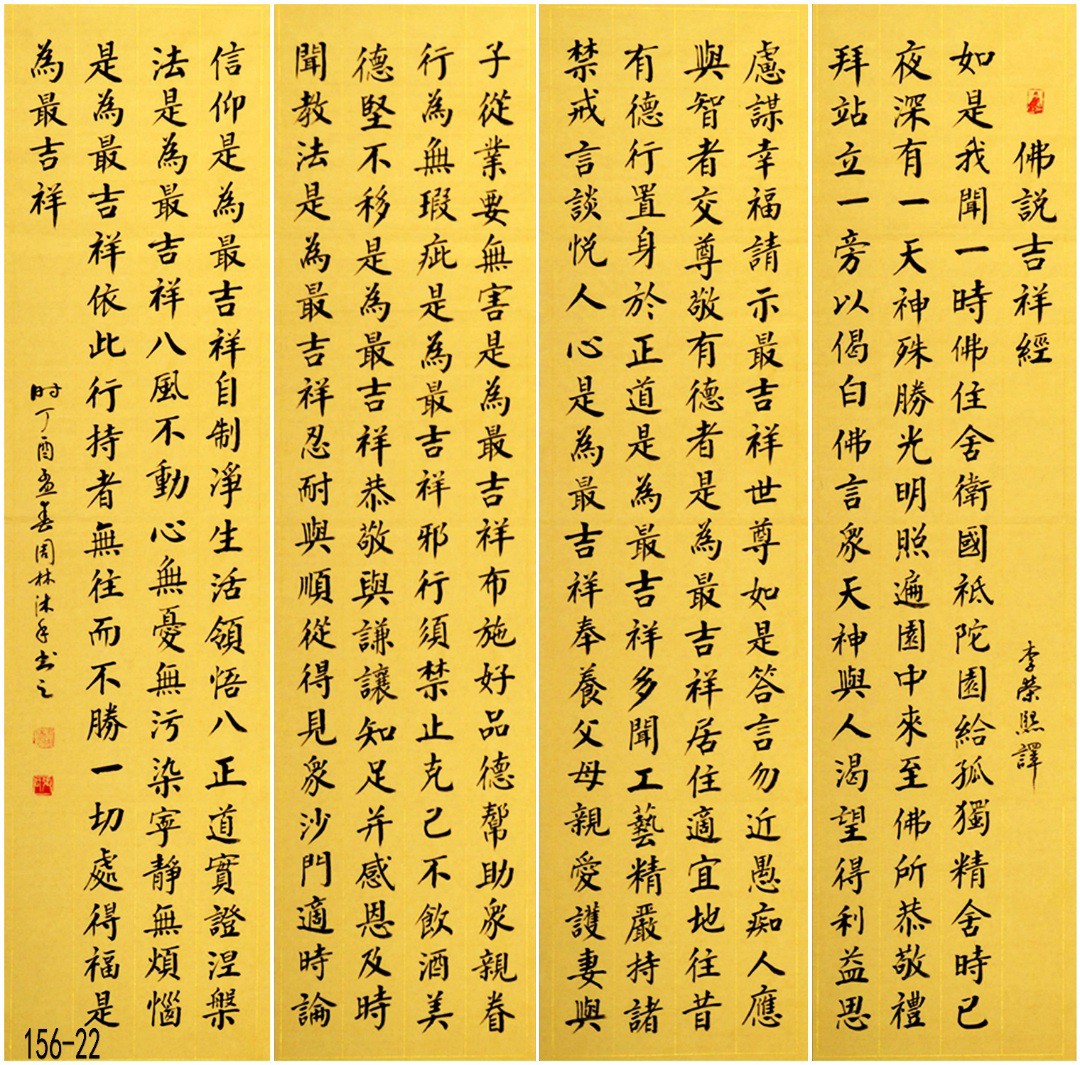 佛説吉祥經
李榮熙譯
如是我聞一時佛住舍衛國祗陀園給孤獨精舍時已
夜深有一天神殊勝光明照遍園中來至佛所恭敬禮
拜站立一旁以偈白佛言衆天神與人渴望得利益思
慮謀幸福請示最吉祥世尊如是答言勿近愚痴人應
與智者交尊敬有德者是為最吉祥居住適宜地往昔
有德行置身於正道是為最吉祥多聞工藝精嚴持諸
禁戒言談悦人心是為最吉祥奉養父母親愛護妻與
子從業要無害是為最吉祥布施好品德幫助衆親眷
行為無瑕疵是為最吉祥邪行須禁止克己不飲酒美
德堅不移是為最吉祥恭敬與謙讓知足并感恩及時
聞教法是為最吉祥忍耐與順從得見衆沙門適時論
信仰是為最吉祥自制淨生活領悟八正道實證涅槃
法是為最吉祥八風不動心無憂無污染寧靜無煩惱
是為最吉祥依此行持者無往而不勝一切處得福是
為最吉祥
时丁酉孟春周林沐手书之
156-22